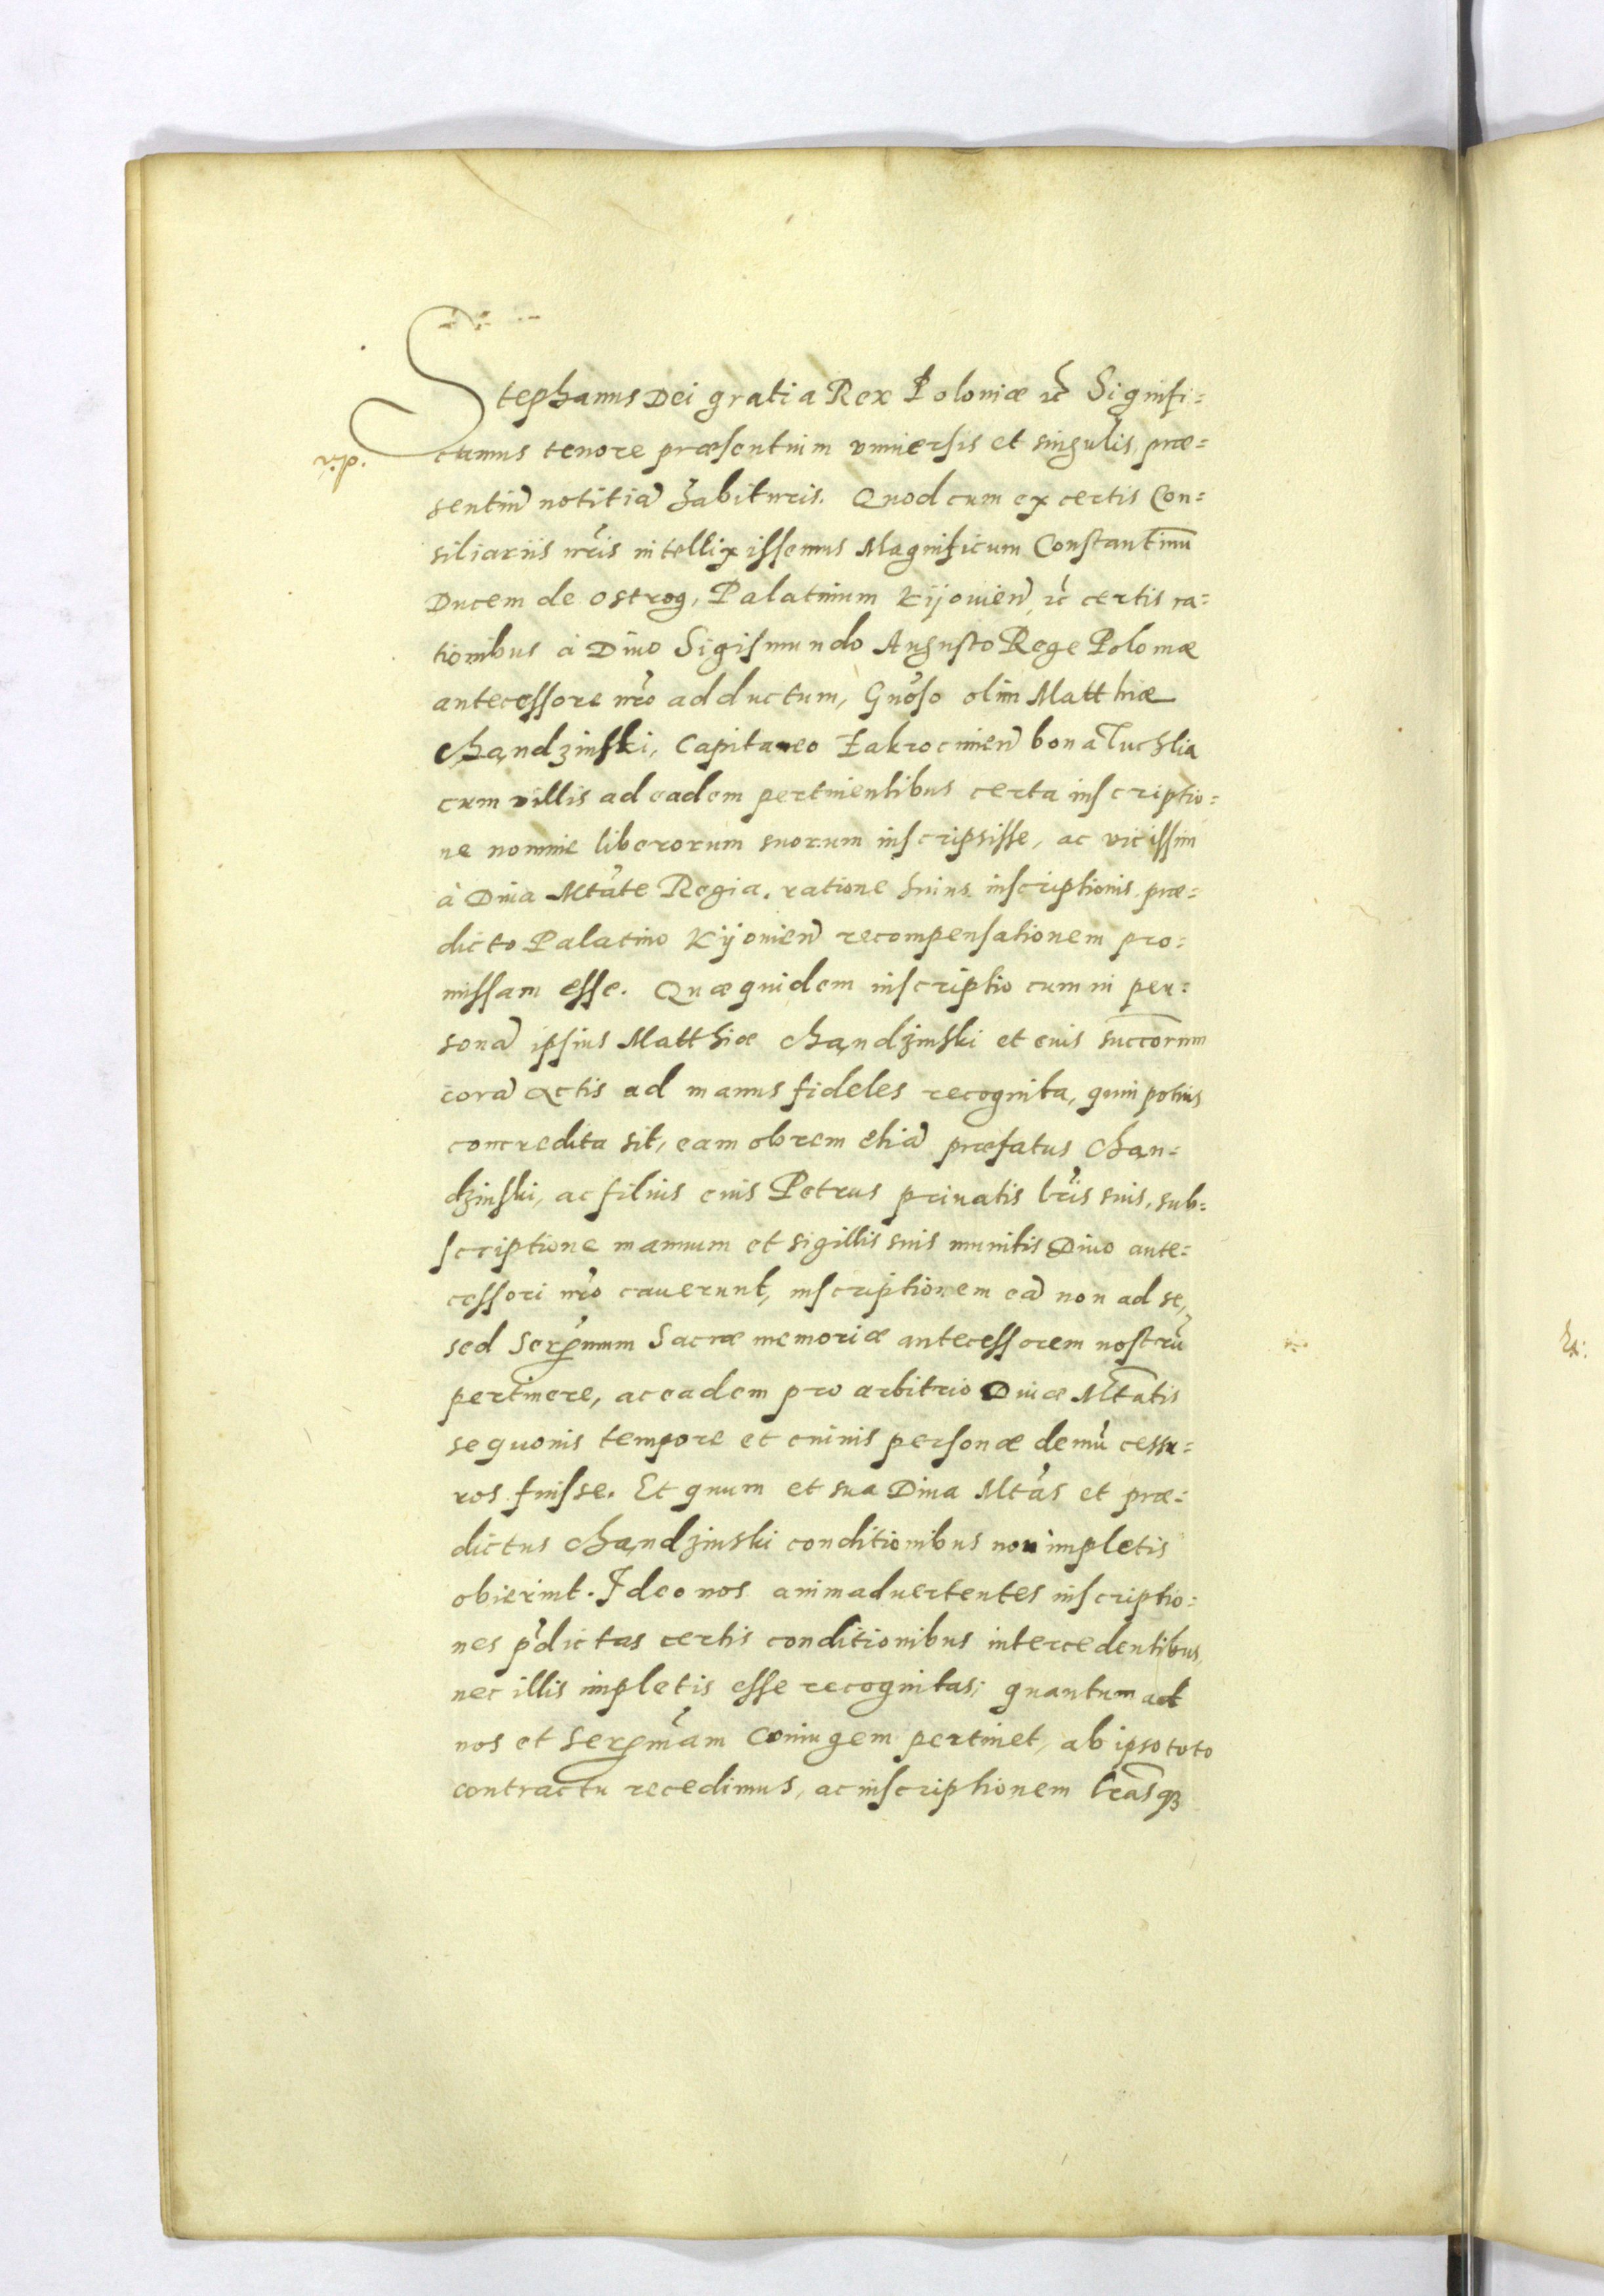 Stephanus Dei gratia Rex Poloniæ ꝛc̃ Signifi=
r.p.
camus tenore præsentium vniuersis et singulis, præ=
sentiũ notitiã habituris. Quod cum ex certis Con=
siliariis nr̃is intellixissemus Magnificum Constantinũ
Ducem de ostrog, Palatinum Kijouien̄, ꝛc̃ certis ra=
tionibus à Diuo Sigismundo Augusto Rege Poloniæ
antecessore nr̃o adductum, Gnõso olim Matthiæ
Chądzinski, Capitaneo Zakrocimien̄ bona Tuchlia
cum villis ad eadem pertinentibus certa inscriptio=
ne nomine liberorum suorum inscripsisse, ac vicissim
à Diua Mtãte Regia, ratione huius inscriptionis præ=
dicto Palatino Kijouien̄ recompensationem pro=
missam esse. Quæ quidem inscriptio cum in per=
sonã ipsius Matthiæ Chądzinski et eius succorum
corã actis ad manus fideles recognita, quin potius
concredita sit, eam obrem etiã præfatus Chąn=
dzinski, ac filius eius Petrus priuatis lr̃is suis, sub=
scriptione manuum et sigillis suis munitis Diuo ante=
cessori nr̃o cauerunt, inscriptionem eã non ad se,
sed Serẽnmum Sacræ memoriæ antecessorem nostrũ
pertinere, ac eadem pro arbitrio Diuæ Mtãtis
se quouis tempore et cuiuis personæ demũ cessu=
ros fuisse. Et quum et sua Diua Mtãs et præ=
dictus Chądzinski conditionibus non impletis
obierint. Ideo nos animaduertentes inscriptio=
nes p̃dictas certis conditionibus intercedentibus,
nec illis impletis esse recognitas; quantum ad
nos et Serẽnm̃am Coniugem pertinet, ab ipso toto
contractu recedimus, ac inscriptionem lr̃asqꝫ